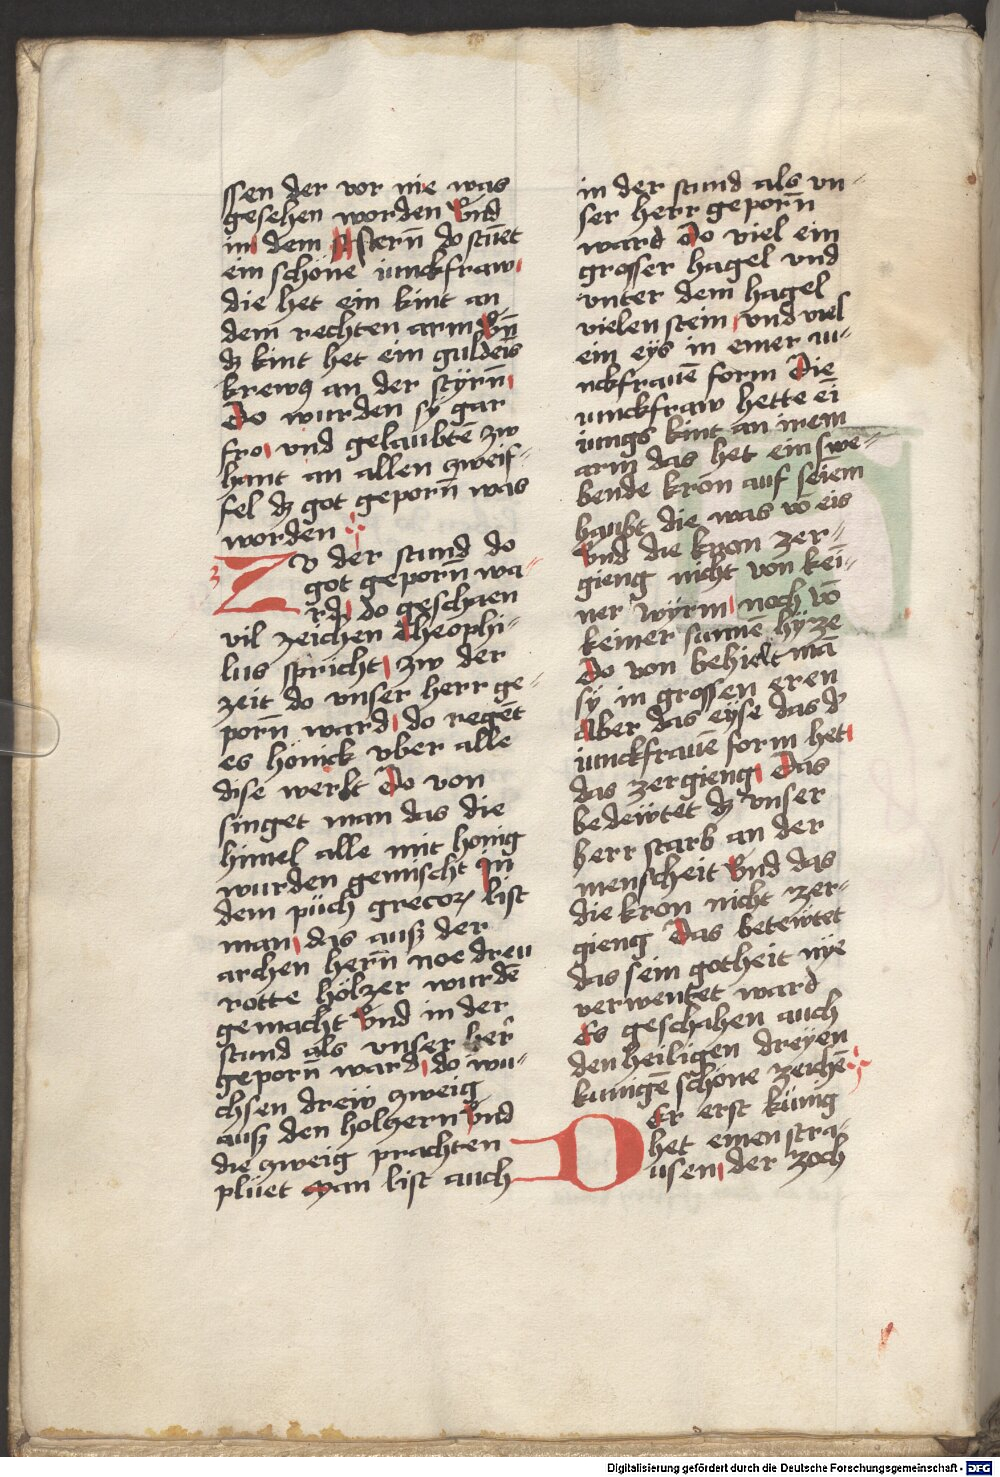 ssen der vor nie was
gesehen worden Vnd
in dem stern̄ do stūet
ein schöne iunckfraw
die het ein kint an
dem rechten arm Vn̄
dz kint het ein guldeīs
krewcz an der styrn̄
Do wurden sy gar
fro vnd gelaubtē zw
hant an allen zweif-
fel dz got geporn̄ was
worden
ZV der stund do
got geporn̄ wa-
rd do geschaen
vil zeichen Theophi-
lus spricht zw der
zeit do vnser herr ge-
porn̄ ward do regēt
es hönick vber alle
dise werlt Do von
singet man das die
himel alle mit honig
wurden gemischt In
dem püch grecoꝝ list
man das auß der
archen hern̄ noe dreu
rotte hölzer wurdē
gemacht Vnd in der
stund als vnser her
geporn̄ ward do wu-
chsen dreẅ zweig
auß den holzern Vnd
die zweig prachten
plüet Man list auch
in der stund als vn-
ser herr geporn̄
ward Do viel ein
grosser hagel vnd
vnter dem hagel
vielen stein vnd viel
ein eÿs in einer iu-
nckfrauē form Die
iunckfraw hette eī
iungs kint an irem
arm das het ein swe-
bende kron auf seiem
haubt die was vō eis
Vnd die kron zer-
gieng nicht von kei-
ner wyrm noch vō
keiner sunnē hÿze
Do von behielt mā
sy in grossen eren
Aber das eÿse das d'
iunckfrauē form het
das zergieng Das
bedewtet dz vnser
herr starb an der
menscheit Vnd das
die kron nicht zer-
gieng Das betewtet
das sein gotheit nye
verwentet ward
Es geschahen auch
den heiligen dreyen
kunigē schöne zeichē
DEr erst künig
het einen stra-
usen der zoch
Digitalisierung gefördert durch die Deutsche Forschungsgemeinschaft - DFG